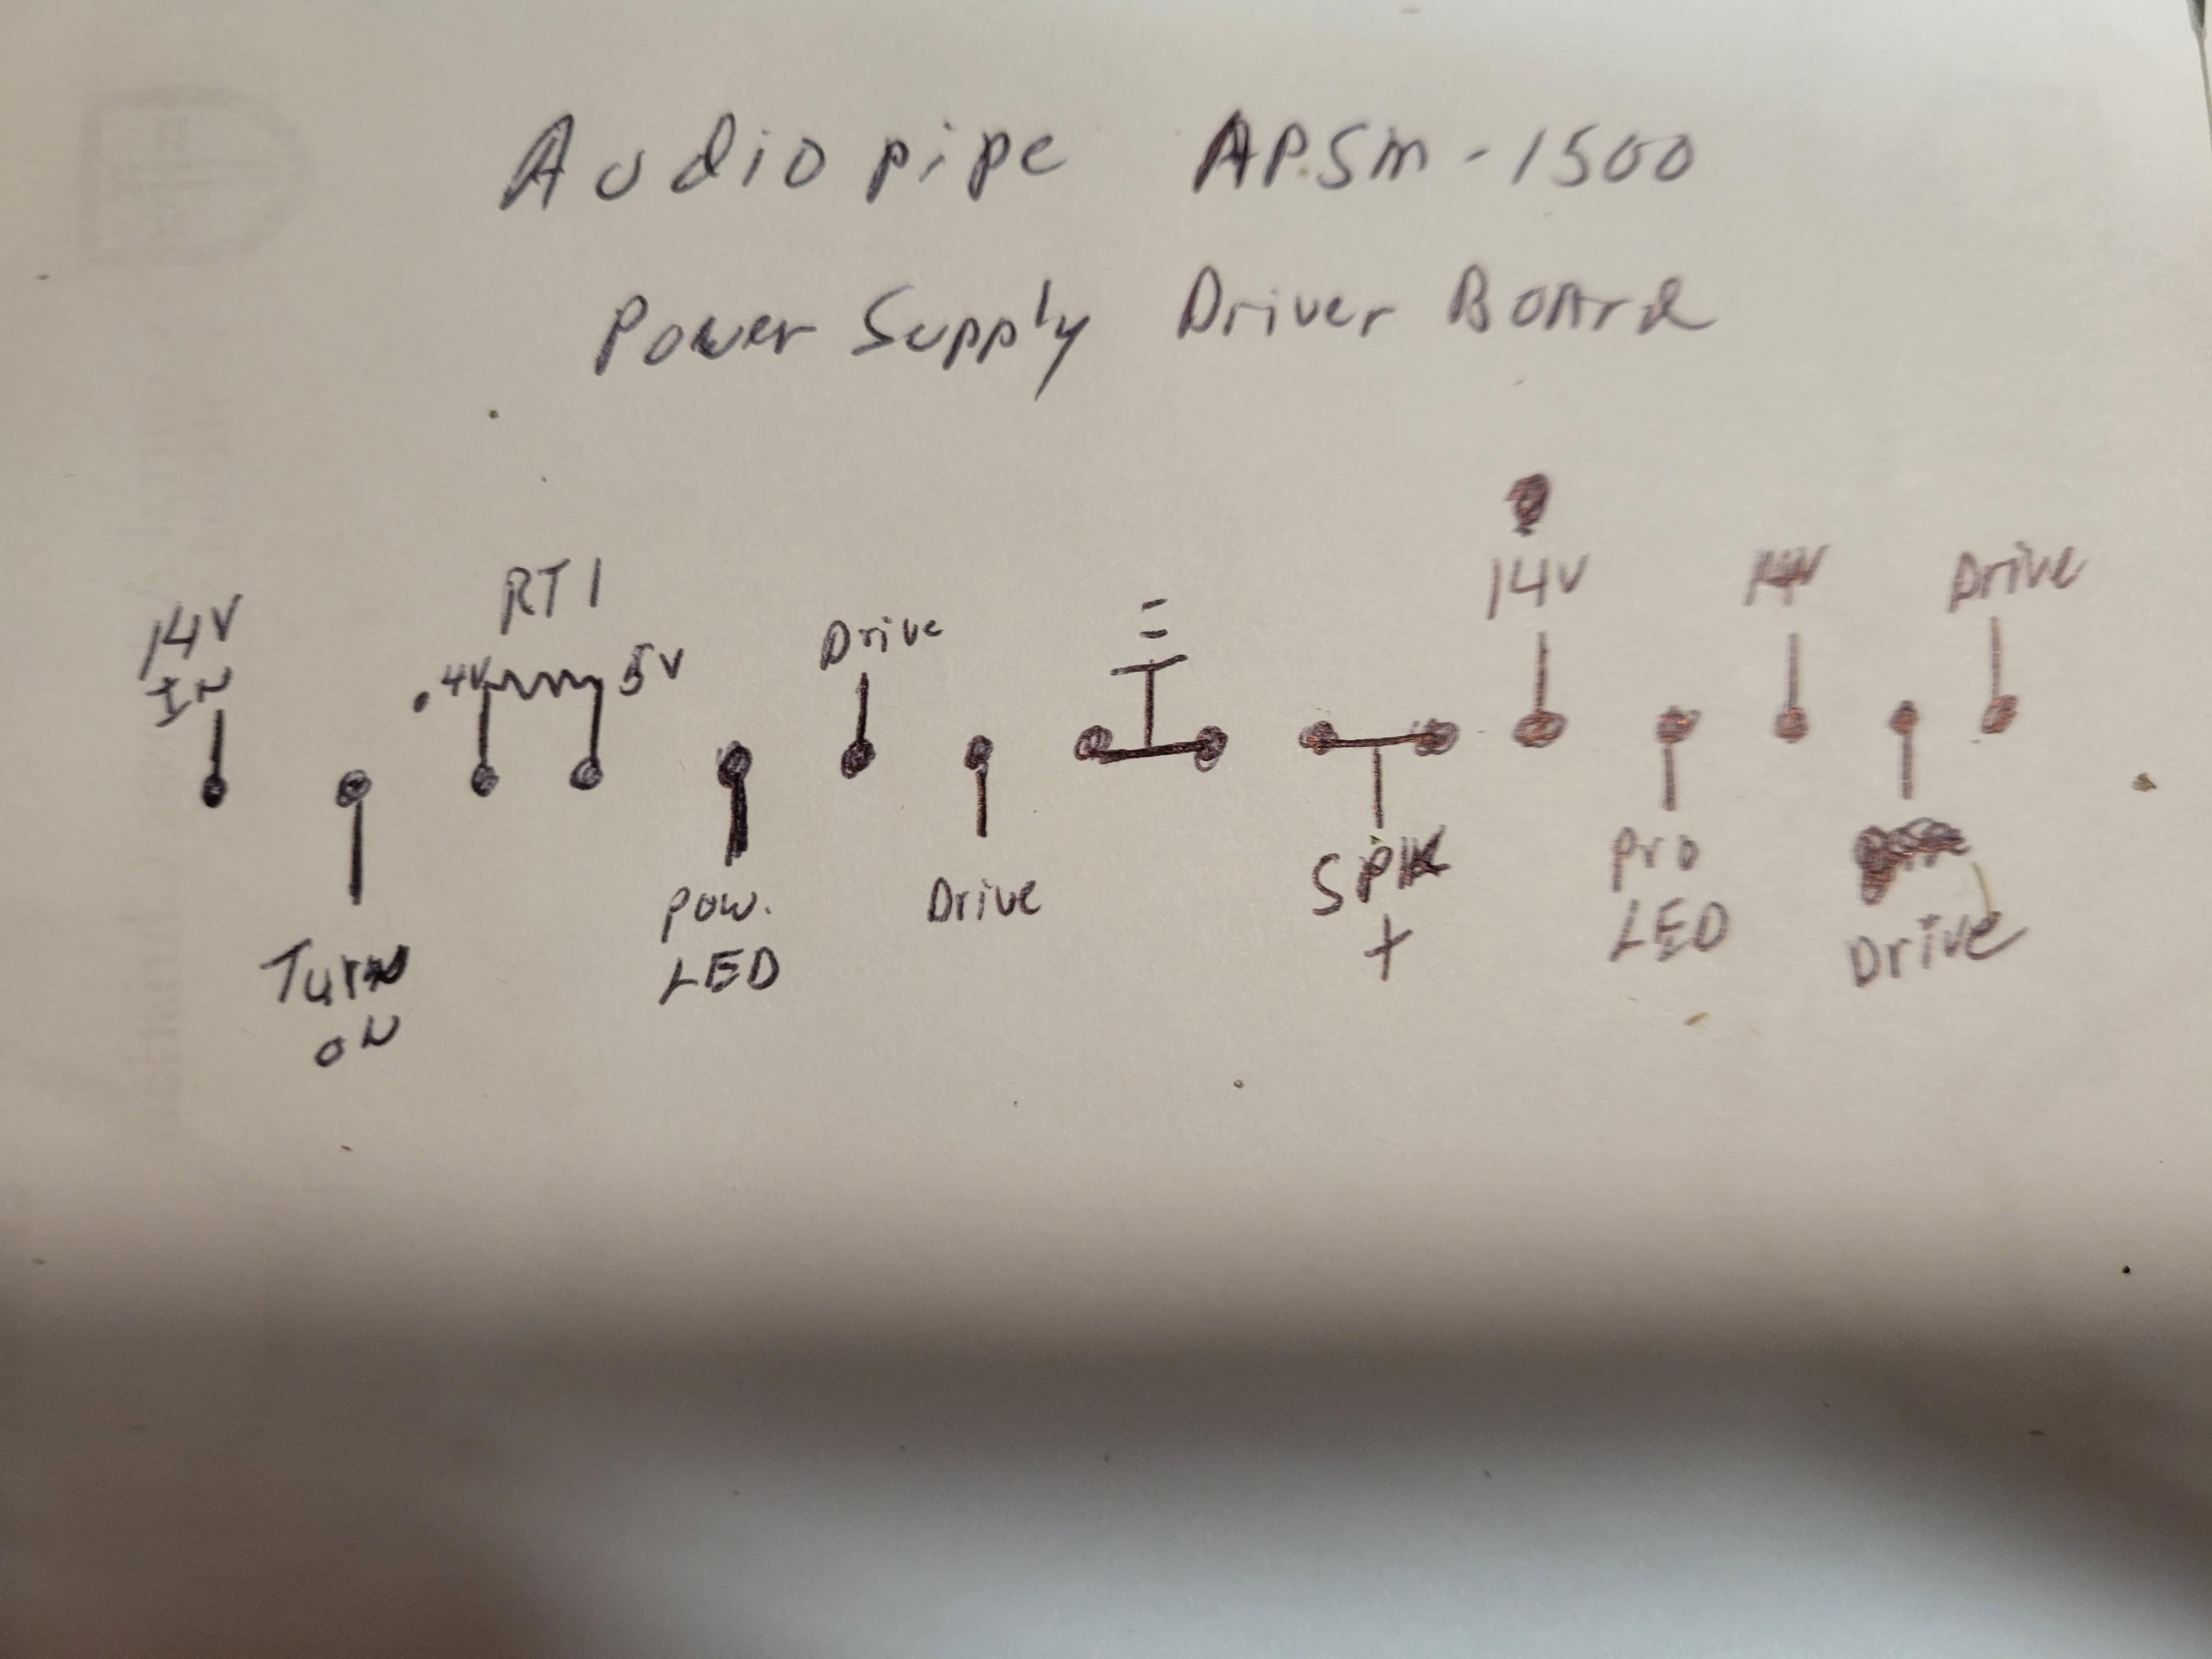 Audiopipe APSM-1500
Power Supply Driver Board
14V
IN
Turn
ON
RT1
.4V 5V
Pow.
LED
Drive
Drive
SPK
+
14V
Pro
LED
14V
Drive
Drive